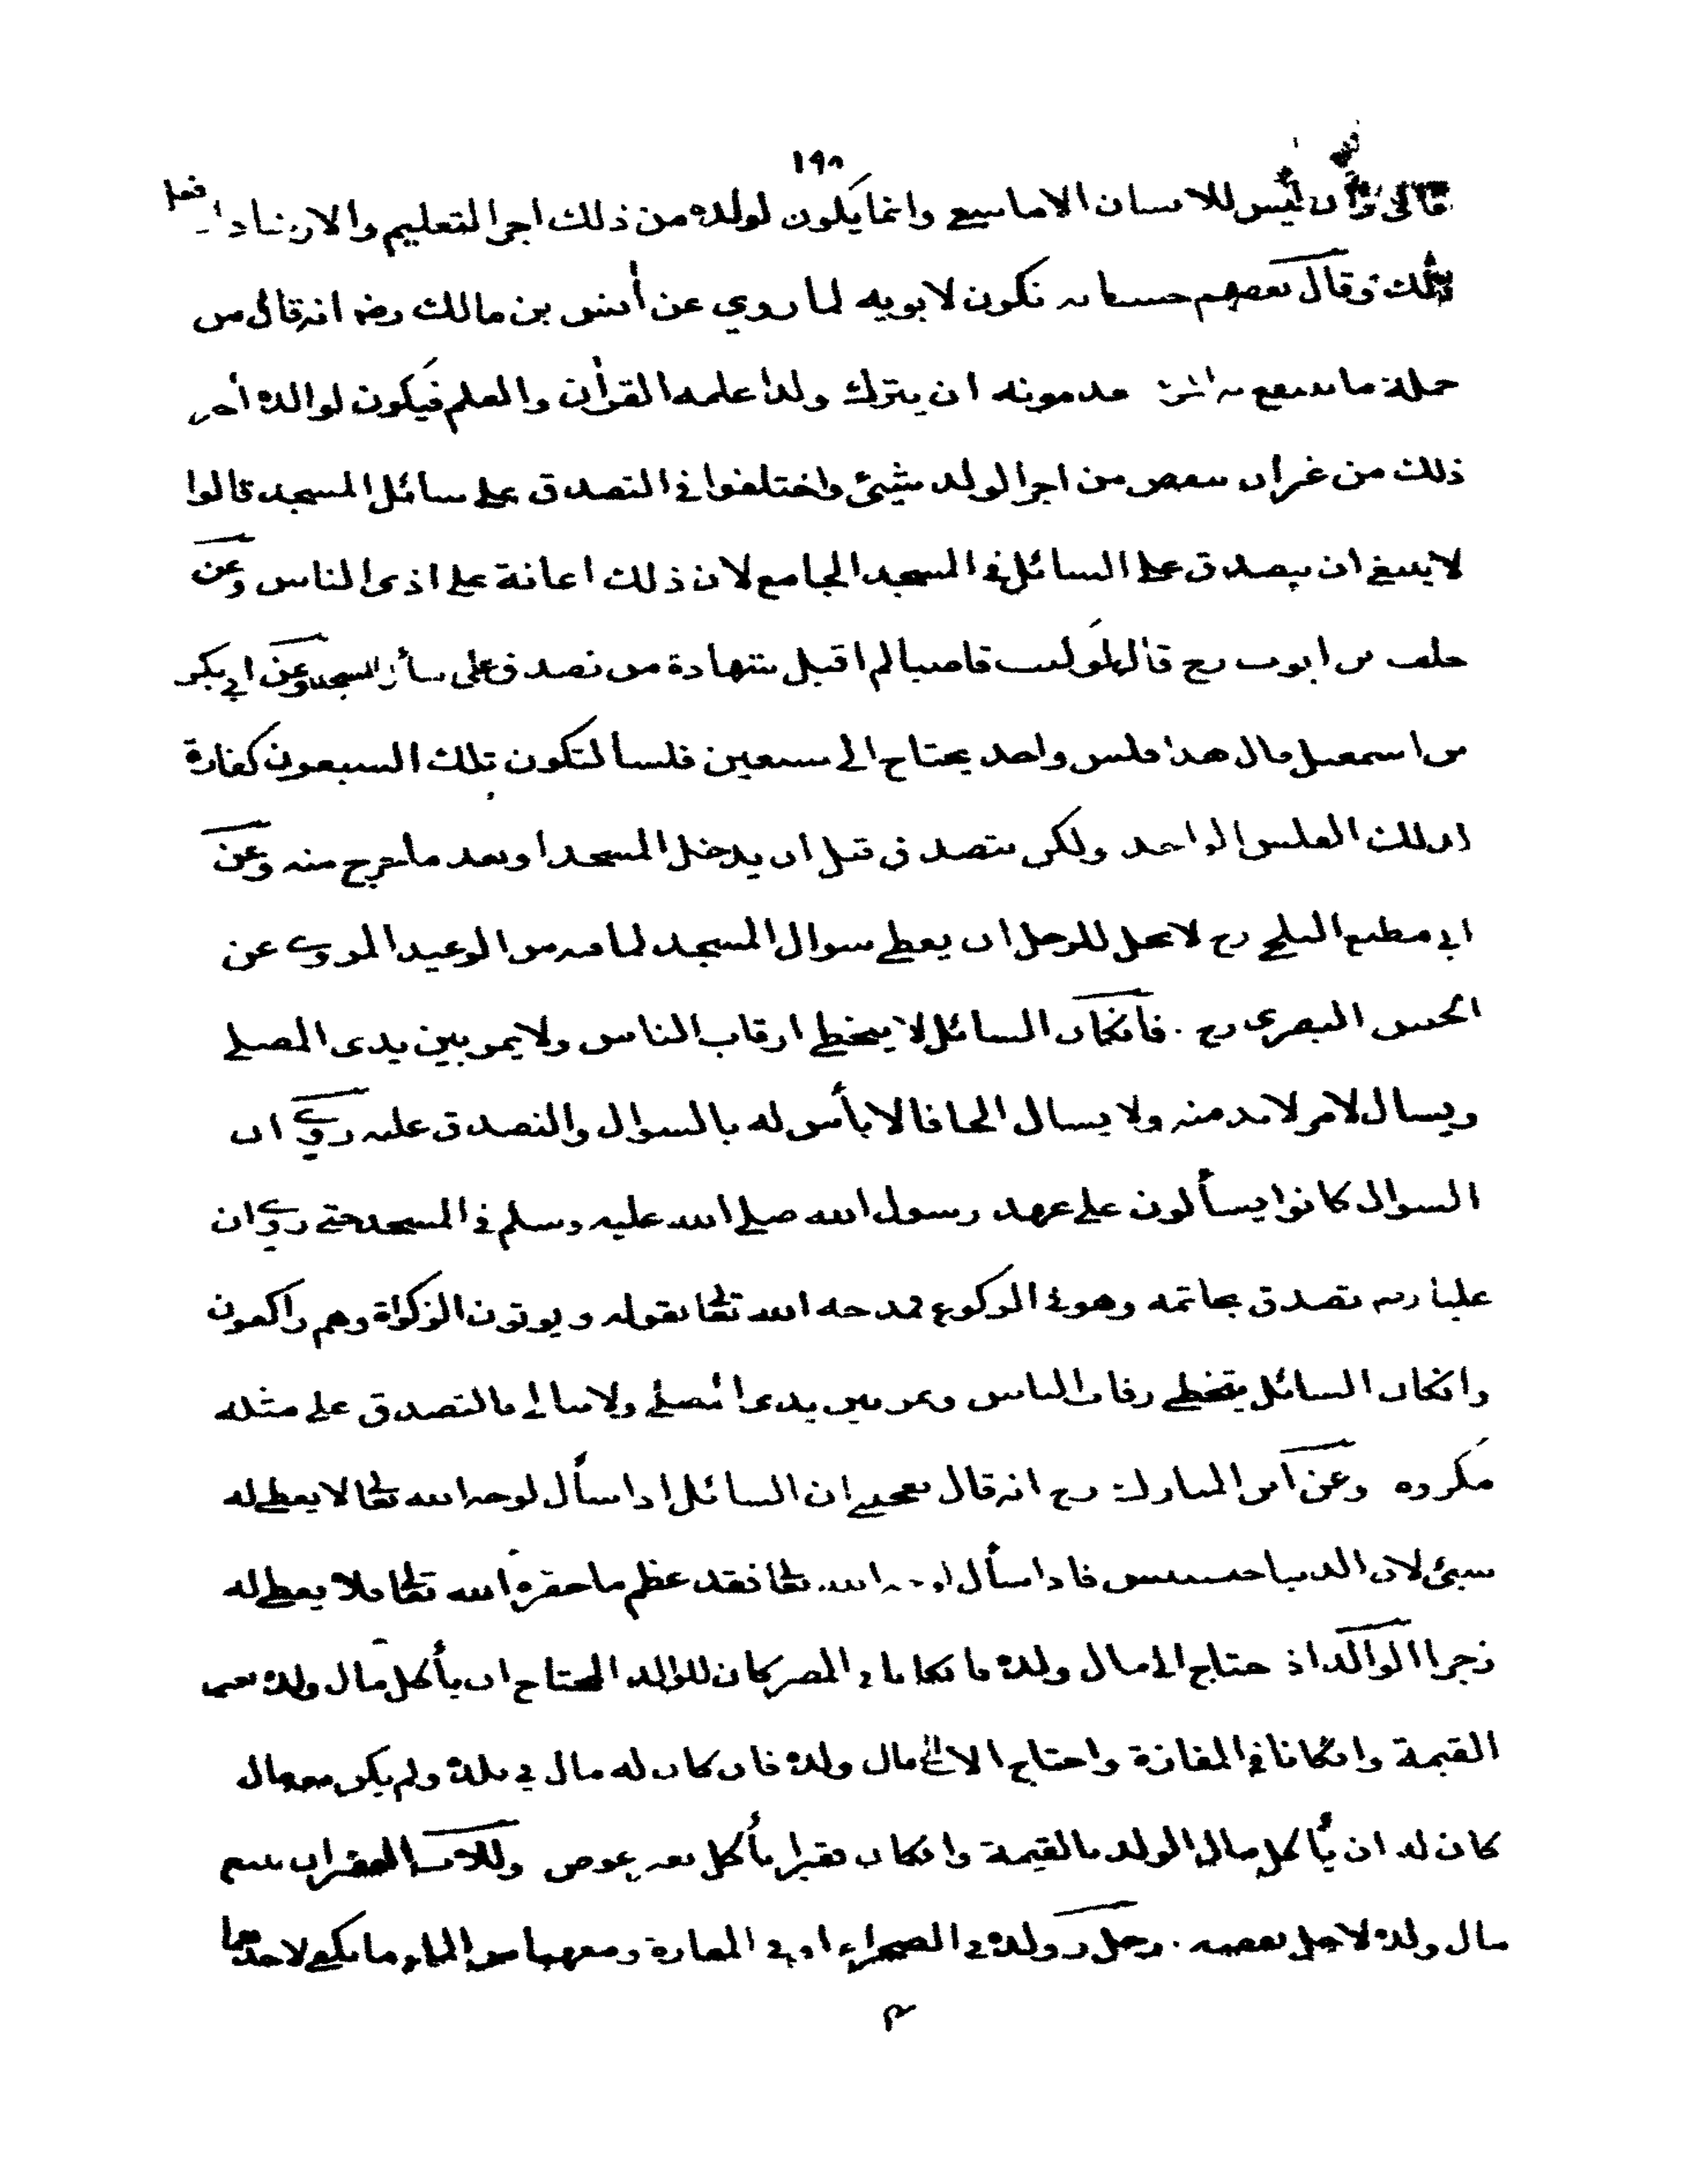 ١٩٨
تعالى وان ليس للانسان الا ما سعى وانما يكون لولده من ذلك اجر التعليم والارشاد اذا فعلا
ذلك وقال بعضهم حسناته تكون لابويه لما روي عن أنس بن مالك رضه انه قال من
جملة ما ينتفع به المرء بعد موته ان يترك ولدا علمه القرآن والعلم فيكون لوالده أجر
ذلك من غير ان ينقص من اجر الولد شيئ واختلفوا في التصدق على سائل المسجد قالوا
لا ينبغي ان يتصدق على السائل في المسجد الجامع لان ذلك اعانة على اذى الناس وعن
خلف بن ايوب رح قال لو كنت قاضيا لم اقبل شهادة من تصدق على سائل المسجد وعن ابي بكر
بن اسمعيل قال هذا فلس واحد يحتاج الى سبعين فلسا لتكون تلك السبعون كفارة
لذلك الفلس الواحد ولكن يتصدق قبل ان يدخل المسجد او بعد ما خرج منه وعن
ابي مطيع البلخي رح لا يحل للرجل ان يعطي سوال المسجد لما فيه من الوعيد المروي عن
الحسن البصري رح . فان كان السائل لا يتخطى ارقاب الناس ولا يمر بين يدى المصلي
ويسال لامر لا بد منه ولا يسال الحافا لا بأس له بالسوال والتصدق عليه روي ان
السوال كانوا يسألون على عهد رسول الله صلى الله عليه وسلم في المسجد حتى روي ان
عليا رضه تصدق بخاتمه وهو في الركوع فمدحه الله تعالى بقوله ويوتون الزكواة وهم راكعون
وان كان السائل يتخطى رقاب الناس ويمر بين يدى المصلي ولا يبالي فالتصدق على مثله
مكروه وعن ابن المبارك رح انه قال يعجبني ان السائل اذا سأل لوجه الله تعالى لا يعطى له
شيئ لان الدنيا خسيس فاذا سأل لوجه الله تعالى فقد عظم ما حقره الله تعالى فلا يعطى له
زجرا الوالد اذا احتاج الى مال ولده فان كانا في المصر كان للوالد المحتاج ان يأكل مال ولده بغير
القيمة وان كانا في المفازة واحتاج الاب الى مال ولده فان كان له مال في بلده ولم يكن معه مال
كان له ان يأكل مال الولد بالقيمة وان كان فقيرا يأكل بغير عوض وللاب الفقير ان يبيع
مال ولده لاجل نفقته . رجل وولده في الصحراء او في المفازة ومعهما من الماء ما يكفي لاحدهما